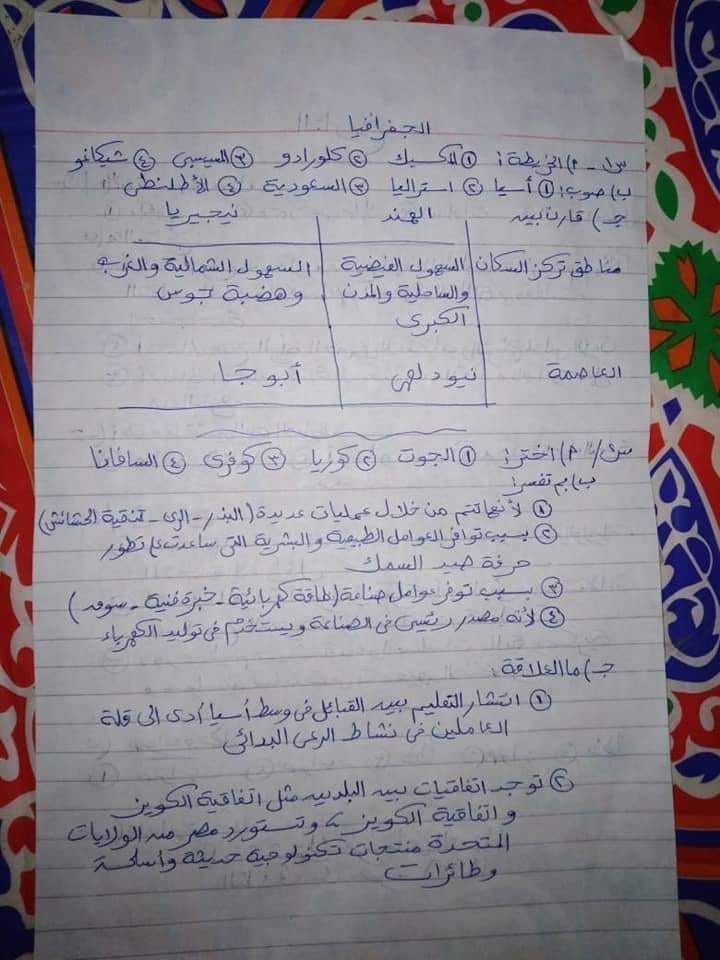 الجغرافيا
س١ - ٢) الخريطة: ① المكسيك ② كلورادو ③ المسيسبى ④ شيكاغو
ب) صوب: ① آسيا ② استراليا ③ السعودية ④ الأطلنطى
جـ) قارن بين الهند نيجيريا
مناطق تركز السكان السهول الفيضية السهول الشمالية والغربية
والساحلية والمدن وهضبة جوس
الكبرى
العاصمة نيودلهى أبوجا
س٢/ ٢) اختر: ① الجوت ② كوريا ③ كوفرى ④ السافانا
ب) بم تفسر:
① لأنها تتم من خلال عمليات عديدة (البذر - الرى - تنقية الحشائش)
② بسبب توافر العوامل الطبيعية والبشرية التى ساعدت على تطور
حرفة صيد السمك
③ بسبب توفر عوامل صناعة (طاقة كهربائية - خبرة فنية - سوق)
④ لأنه مصدر رئيسى فى الصناعة ويستخدم فى توليد الكهرباء
جـ) ما العلاقة:
① انتشار التعليم بين القبائل فى وسط أسيا أدى الى قلة
العاملين فى نشاط الرعى البدائى
② توجد اتفاقيات بين البلدين مثل اتفاقية الكويز
واتفاقية الكويز، وتستورد مصر من الولايات
المتحدة منتجات تكنولوجية حديثة واسلحة
وطائرات